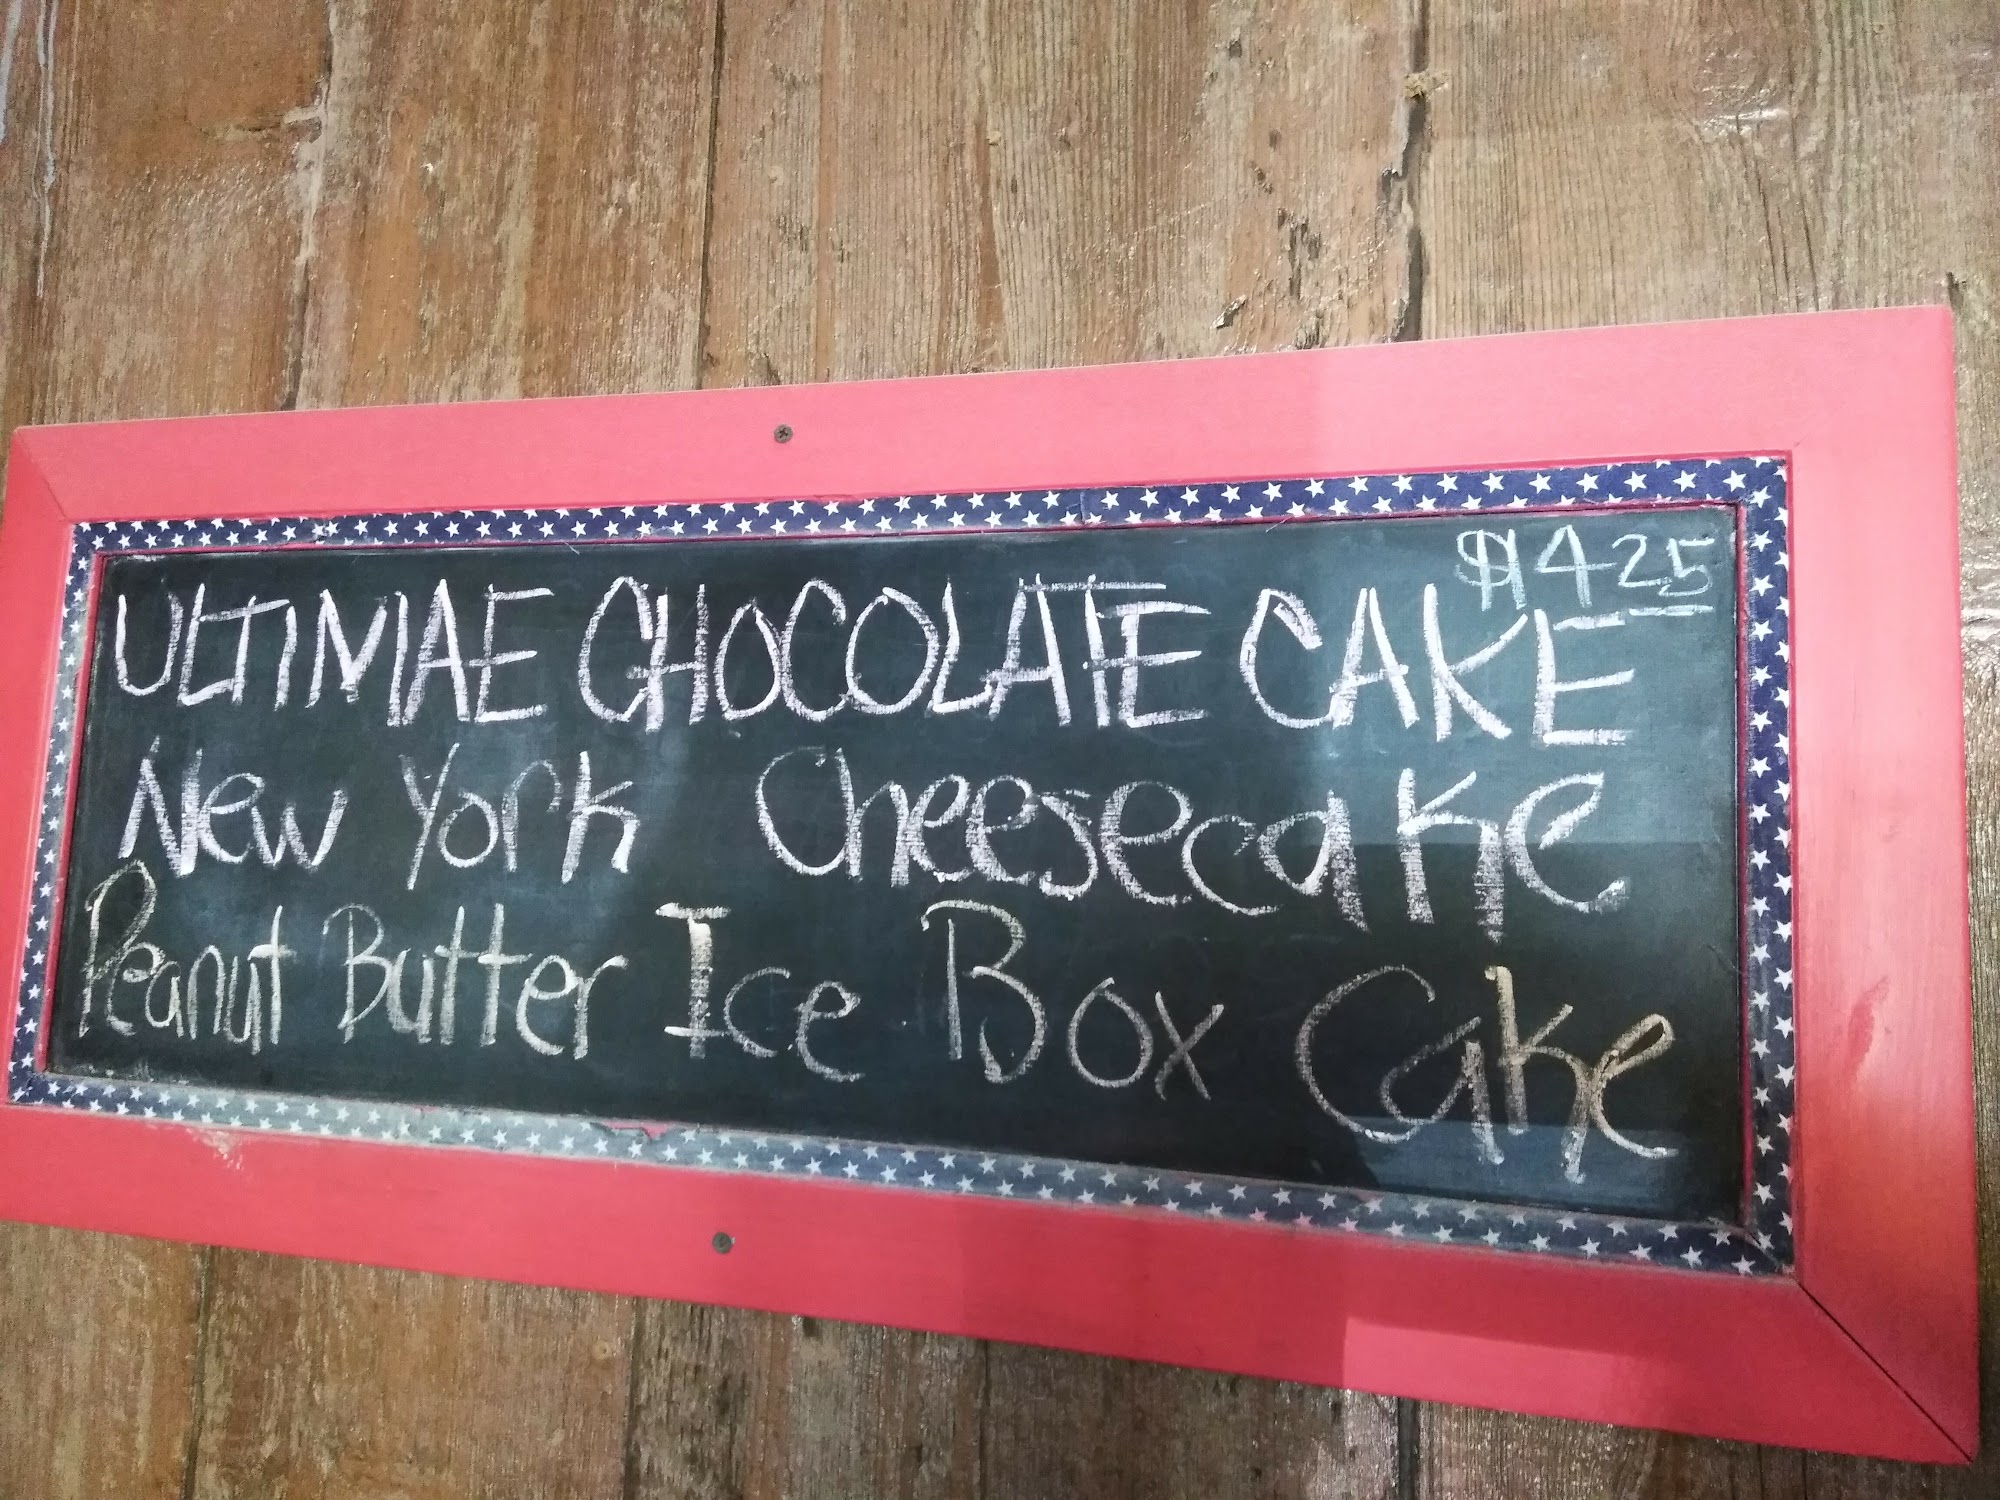 $4 25
ULTIMAE CHOCOLATE CAKE
New York Cheesecake
Peanut Butter Ice Box Cake